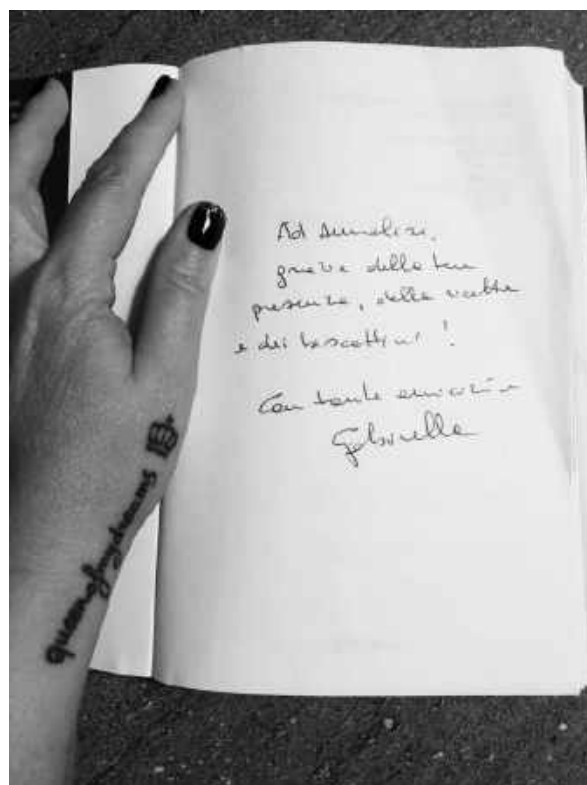 Ad Annalisa,
grazie della tua
presenza, della scelta
e dei biscottini!
Con tanta amicizia
queenofmydreams